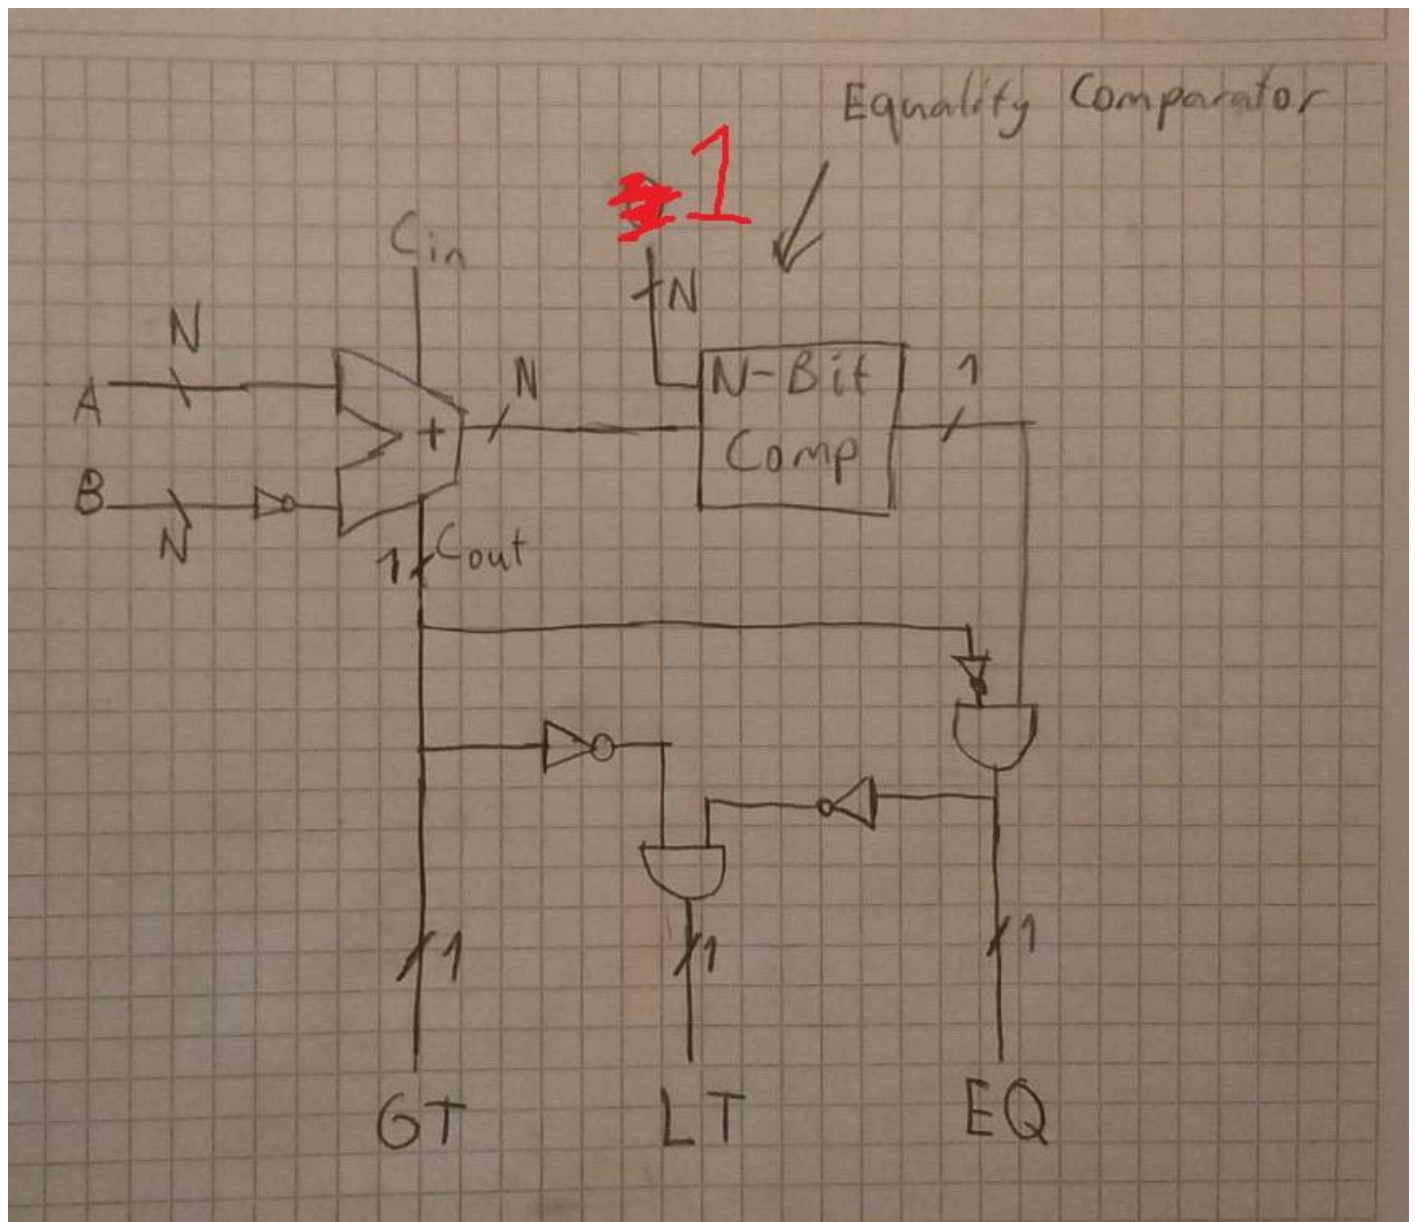 Equality Comparator
1
Cin
N
N
A
N
N-Bit
Comp
1
+
B
N
1
Cout
1
1
1
GT
LT
EQ